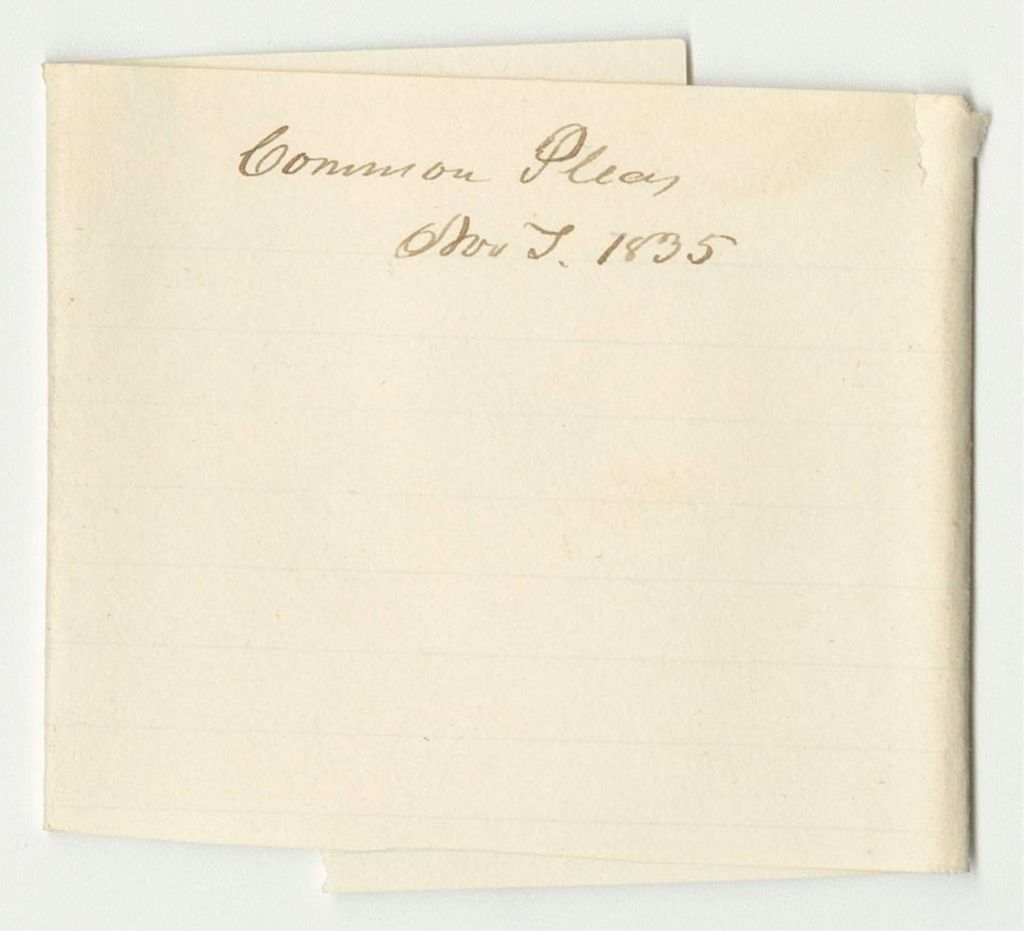 Common Pleas
Nov T. 1835